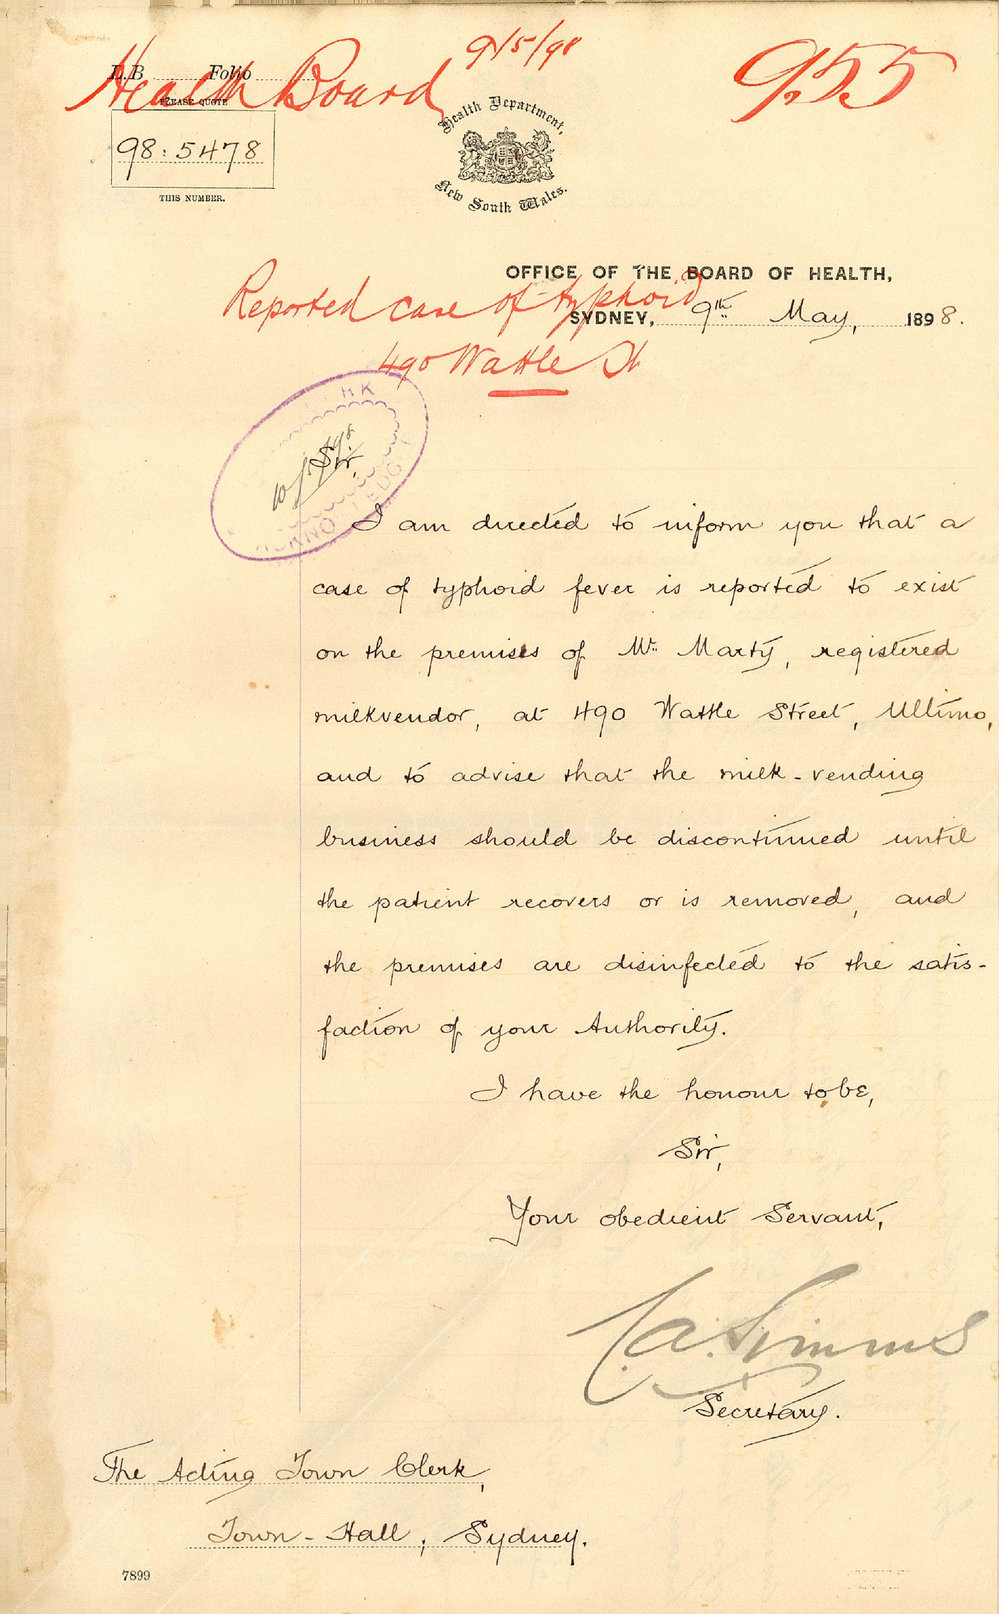 Health Board
9/5/98
955
L.B Folio
PLEASE QUOTE
98:5478
THIS NUMBER.
Health Department,
New South Wales.
OFFICE OF THE BOARD OF HEALTH,
Reported case of typhoid
SYDNEY, 9th May, 1898.
490 Wattle St
Sir,
I am directed to inform you that a
case of typhoid fever is reported to exist
on the premises of Mr. Marty, registered
milkvendor, at 490 Wattle Street, Ultimo,
and to advise that the milk-vending
business should be discontinued until
the patient recovers or is removed, and
the premises are disinfected to the satis-
faction of your Authority.
I have the honour to be,
Sir,
Your obedient Servant,
Secretary.
The Acting Town Clerk,
Town-Hall, Sydney.
7899